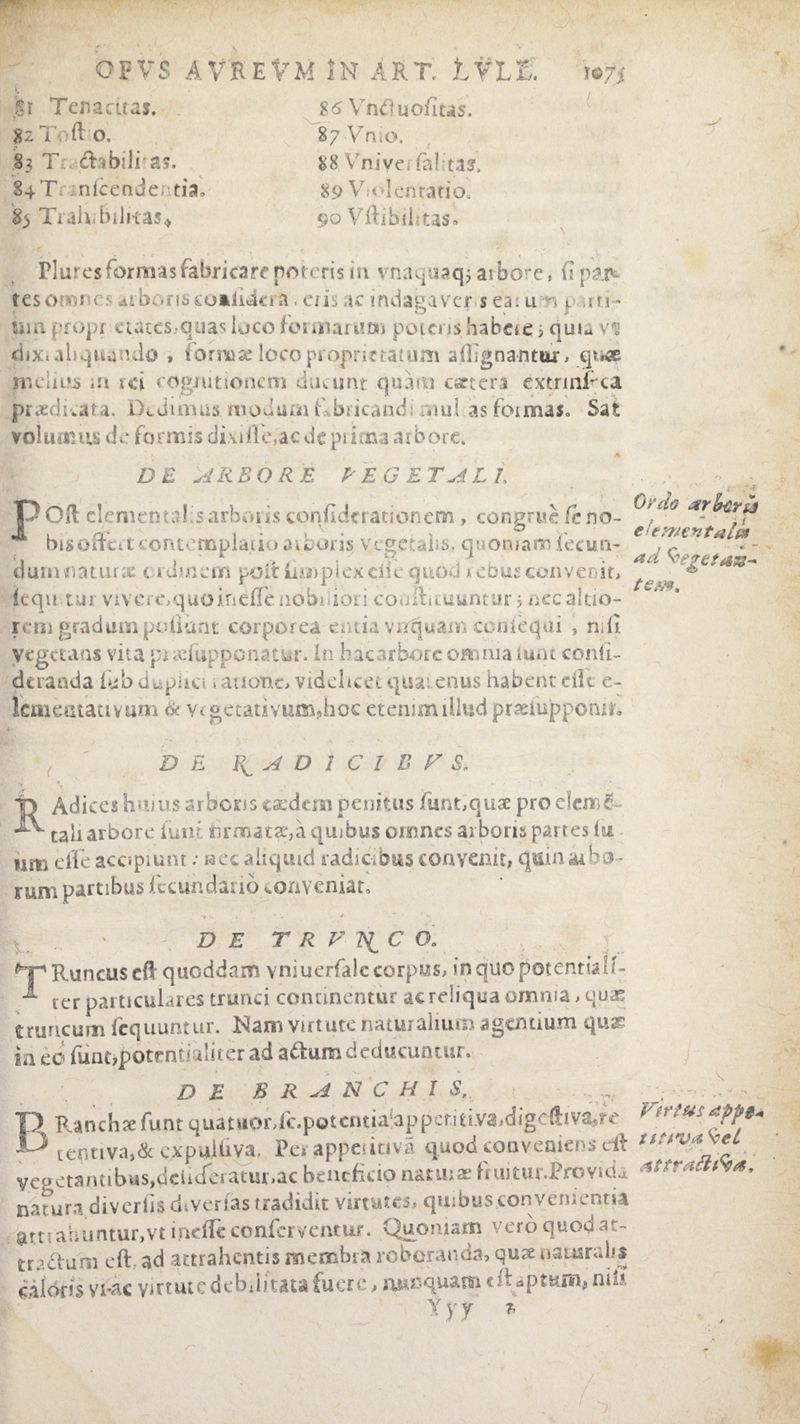 OPVS AVREVM IN ART. LVLL. 1075
81 Tenacitas.
82 Tostio.
83 Tractabilitas.
84 Transcendentia.
85 Trahibilitas.
86 Vnctuositas.
87 Vnio.
88 Vniversalitas.
89 Violentatio.
90 Vstibilitas.
Plures formas fabricare poteris in vnaquaq; arbore, si par-
tes omnes arboris considera. eris ac indagaver s earum parti-
um propr etates, quas loco formarum poteris habere; quia vt
dixi aliquando, formæ loco proprietatum assignantur, quæ
melius in rei cognitionem ducunt quàm cætera extrinseca
prædicata. Dedimus modum fabricandi mul as formas. Sat
volumus de formis dixisse, ac de prima arbore.
DE ARBORE VEGETALI.
POst elementalis arboris considerationem, congruè se no-
bis offert contemplatio arboris vegetalis, quoniam secun-
dum naturæ ordinem post simplex esse quod rebus convenit,
sequitur vivere, quo inesse nobiliori constituuntur; nec altio-
rem gradum possunt corporea entia vnquam consequi, nisi
vegetans vita præsupponatur. In hac arbore omnia sunt consi-
deranda sub duplici ratione, videlicet quatenus habent esse e-
lementativum & vegetativum, hoc etenim illud præsupponit.
Ordo arboris
elementalis
ad Vegetan-
tem.
DE RADICIBVS.
RAdices huius arboris eædem penitus sunt, quæ pro elemē-
tali arbore sunt firmatæ, à quibus omnes arboris partes su-
um esse accipiunt: nec aliquid radicibus convenit, quin arbo-
rum partibus secundariò conveniat.
DE TRVNCO.
TRuncus est quoddam vniuersale corpus, in quo potentiali-
ter particulares trunci continentur ac reliqua omnia, quæ
truncum sequuntur. Nam virtute naturalium agentium quæ
in eo sunt, potentialiter ad actum deducuntur.
DE BRANCHIS.
BRanchæ sunt quatuor, sc. potentia appetitiva, digestiva, re-
tentiva, & expulsiva. Per appetitivã quod conveniens est
vegetantibus, desideratur, ac beneficio naturæ fruitur. Provida
natura diversis diversas tradidit virtutes, quibus convenientia
attrahuntur, vt inesse conserventur. Quoniam verò quod at-
tractum est, ad attrahentis membra roboranda, quæ naturalis
caloris vi ac virtute debilitata fuere, nunquam est aptum, nisi
Virtus appe-
titiva vel
attractiva.
Yyy 2